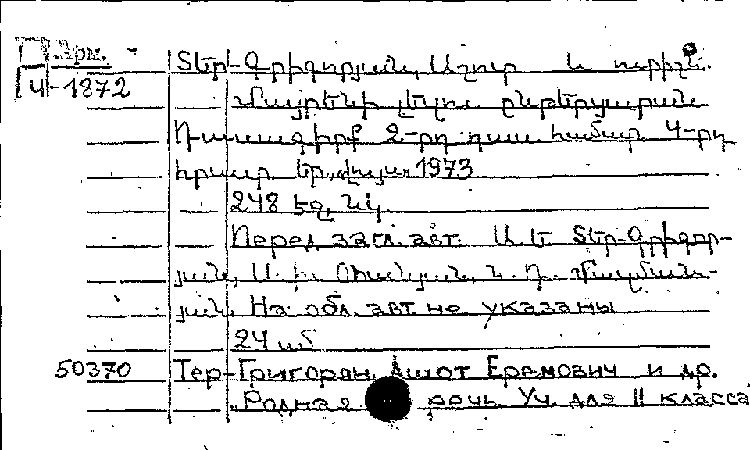 Арм.
4-1872
Տեր-Գրիգորյան, Աշոտ և ուրիշն.
Մայրենի լեզու ընթերցարան
Դասագիրք 2-րդ դաս. համար 4-րդ
հրատ. Եր., Լույս, 1973
248 էջ, նկ.
Перед загл. авт. Ա. Ե. Տեր-Գրիգոր-
յան, Ա. Խ.
յան. На обл. авт. не указаны
24 
50370 Тер-Григорян, Ашот Еремович и др.
Родная речь. Уч. для II класса